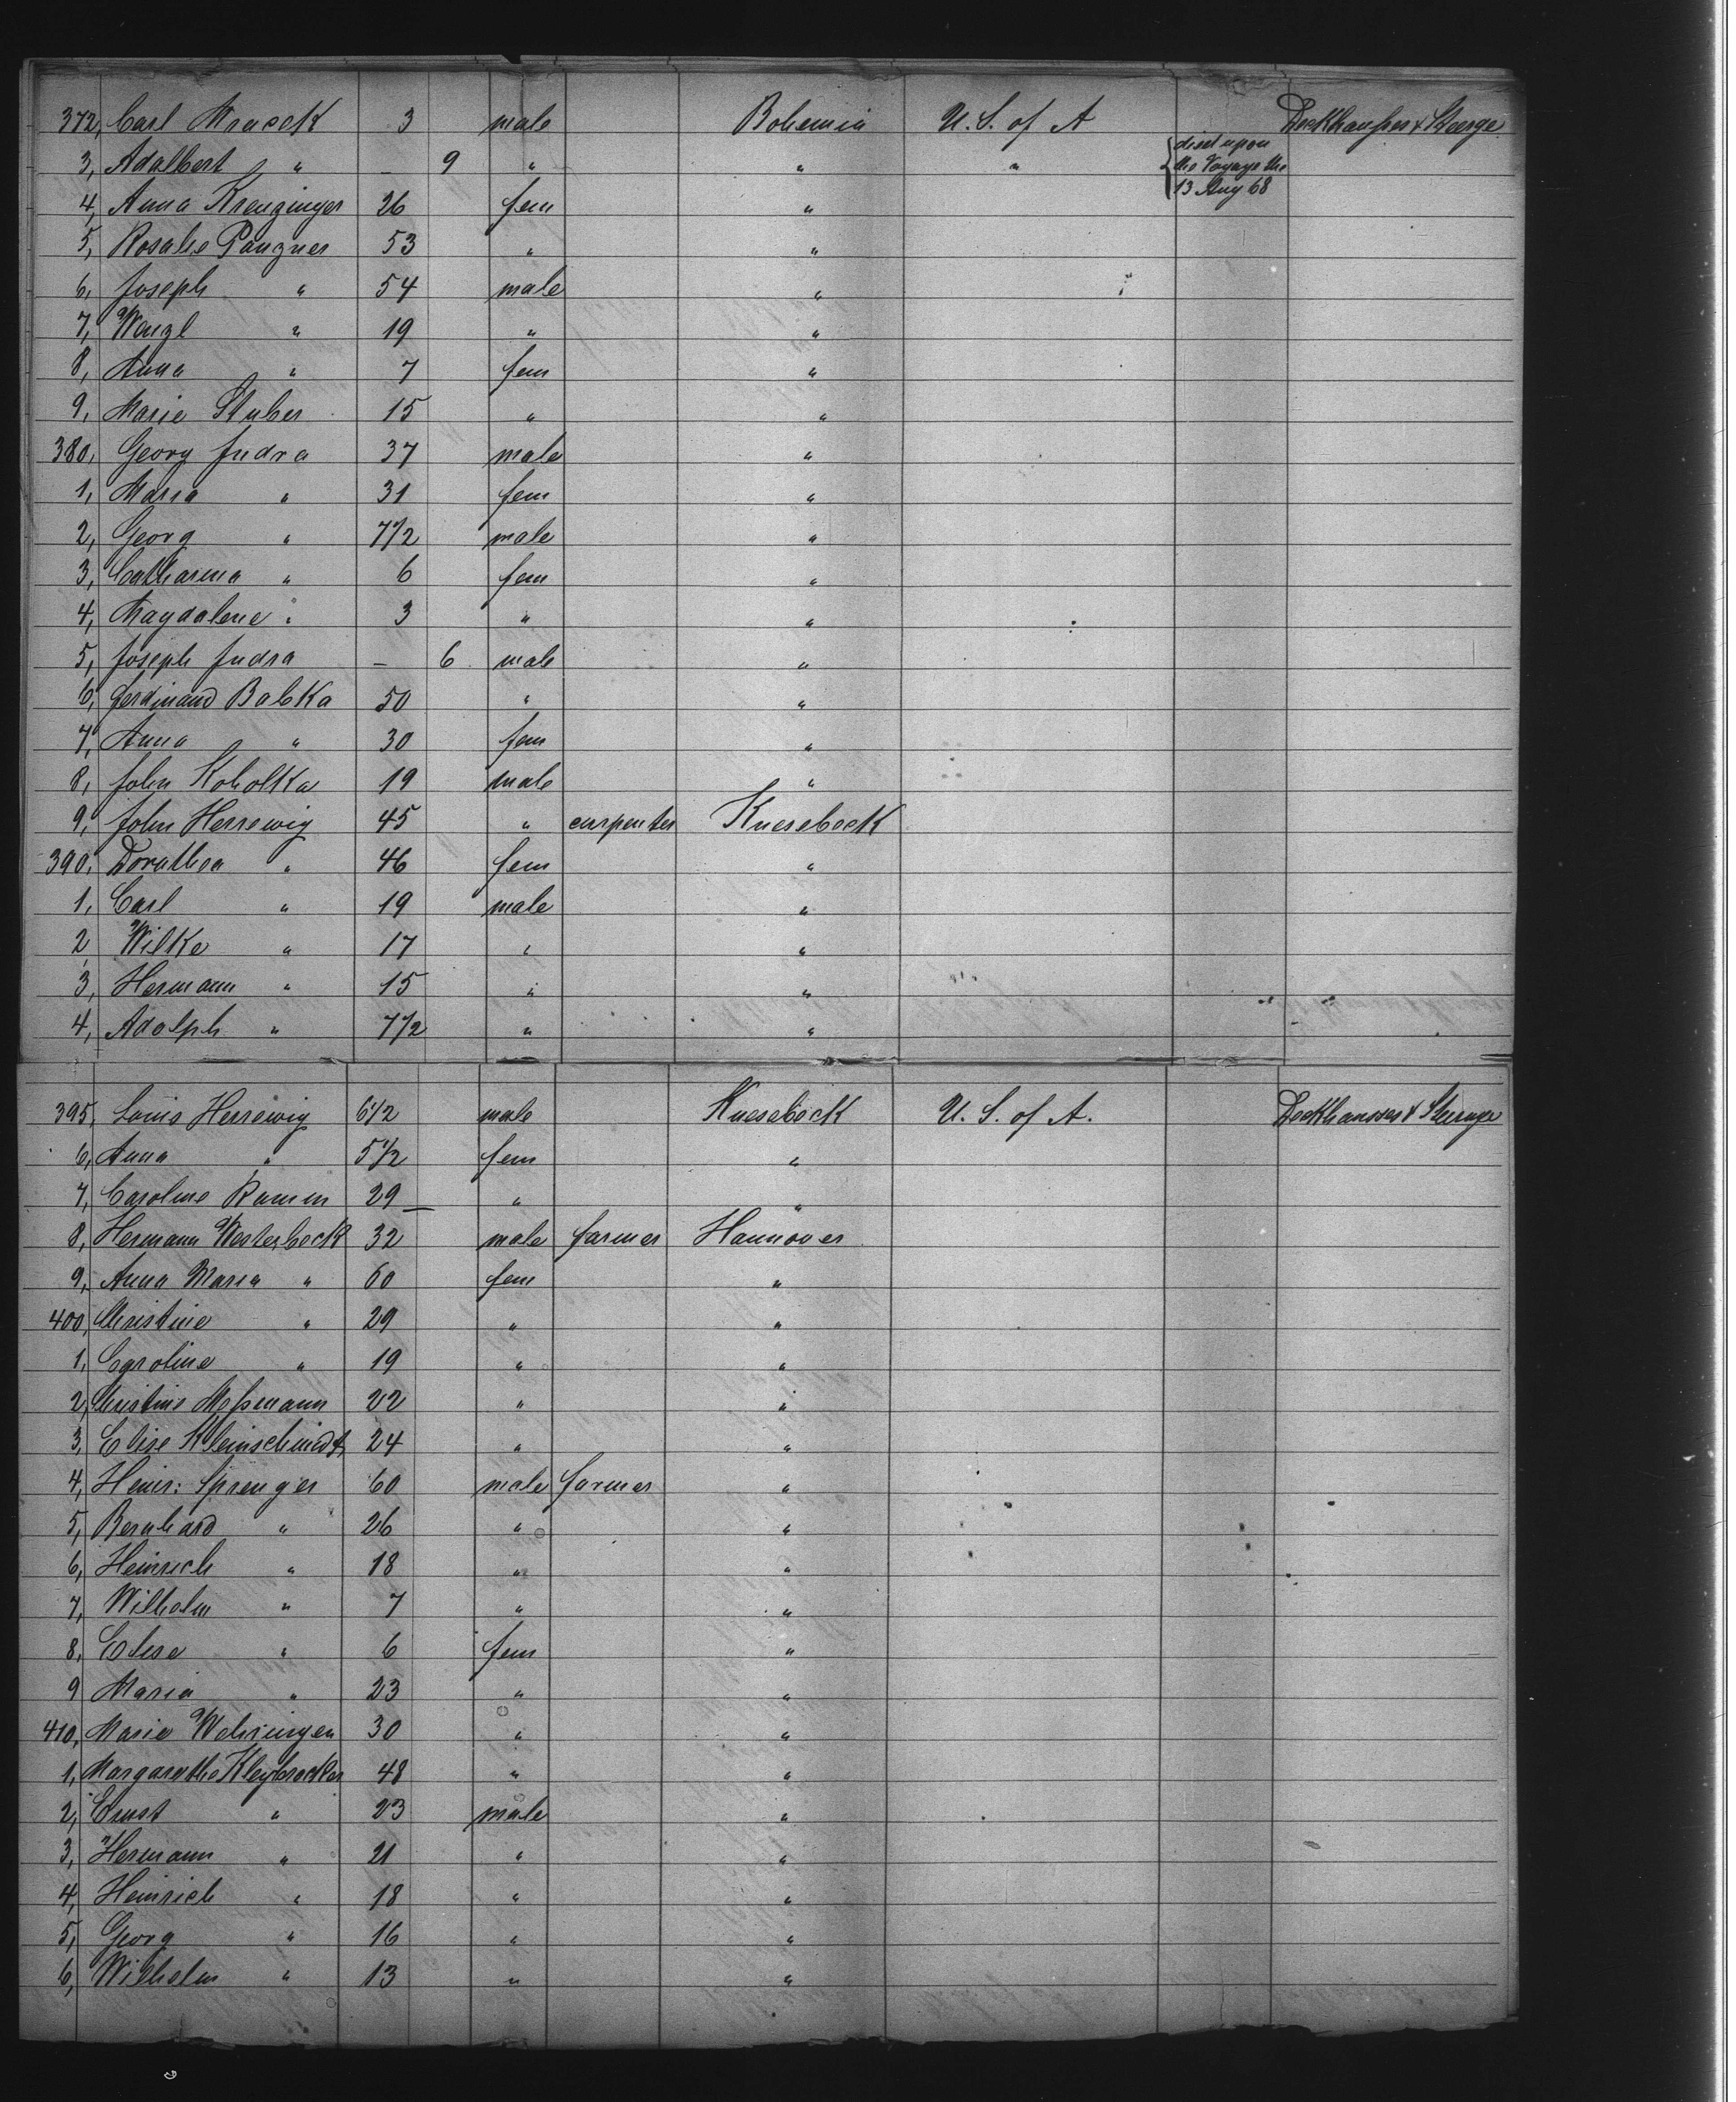 372, Carl Mraсek 3 male Bohemia U. S. of A Deckhausses & Steerge
3, Adalbert " - 9 " " " died upon the Voyage the 13 Aug 68
4, Anna Kreuzinger 26 fem "
5, Rosalie Pangner 53 " "
6, Joseph " 54 male "
7, Wenzl " 19 " "
8, Anna " 7 fem "
9, Marie Stuber 15 " "
380, Georg Judra 37 male "
1, Maria " 31 fem "
2, Georg " 7 1/2 male "
3, Catharina " 6 fem "
4, Magdalene " 3 " "
5, Joseph Judra - 6 male "
6, Ferdinand Babka 50 " "
7, Anna " 30 fem "
8, John Koholka 19 male "
9, John Herrewig 45 " carpenter Knesebeck
390, Dorathea " 46 fem "
1, Carl " 19 male "
2, Wilke " 17 " "
3, Hermann " 15 " "
4, Adolph " 7 1/2 " "
395, Louis Herrewig 6 1/2 male Knesebeck U. S. of A. Deckhausses & Steerage
6, Anna " 5 1/2 fem "
7, Caroline Ramin 29 " "
8, Hermann Westerbeck 32 male farmer Hannover
9, Anna Maria " 60 fem "
400, Christine " 29 " "
1, Caroline " 19 " "
2, Christine Meßmann 22 " "
3, Elise Kleinschmidt 24 " "
4, Heinr: Sprenger 60 male farmer "
5, Bernhard " 26 " "
6, Heinrich " 18 " "
7, Wilhelm " 7 " "
8, Elise " 6 fem "
9 Maria " 23 " "
410, Marie Wehringen 30 " "
1, Margarethe Kleybrocker 48 " "
2, Ernst " 23 male "
3, Hermann " 21 " "
4, Heinrich " 18 " "
5, Georg " 16 " "
6, Wilhelm " 13 " "